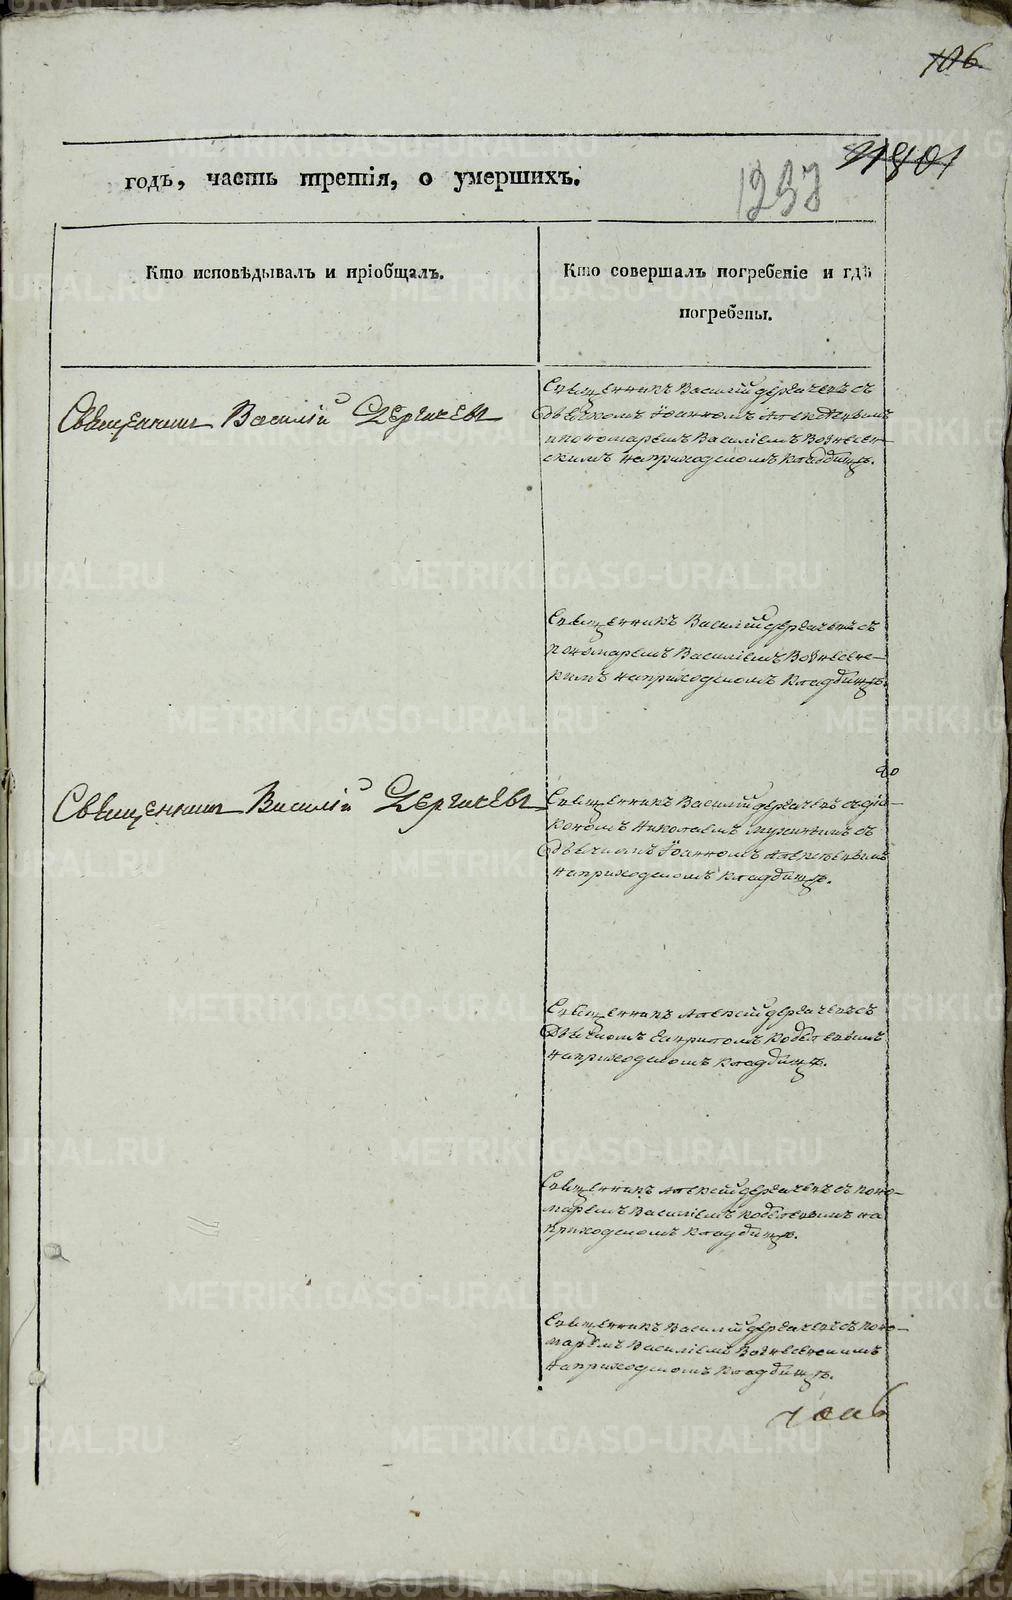 106
годъ, часть третія, о умершихъ.
1237
Кто исповѣдывалъ и пріобщалъ.
Кто совершалъ погребеніе и гдѣ
погребены.
Священникъ Василій Дергачевъ
Священникъ Василій Дергачевъ съ
Дьячкомъ Іоанномъ
и пономаремъ Василіемъ Вознесен-
скимъ на приходскомъ кладбищѣ.
Священникъ Василій Дергачевъ съ
пономаремъ Василіемъ Вознесенс-
кимъ на приходскомъ кладбищѣ.
Священникъ Василій Дергачевъ
Священникъ Василій Дергачевъ съ діа-
кономъ Николаемъ съ
Дьячкомъ Іоанномъ
на приходскомъ кладбищѣ.
Священникъ Алексій Дергачевъ съ
Дьячкомъ
на приходскомъ кладбищѣ.
Священникъ Алексій Дергачевъ съ поно-
маремъ Василіемъ на
приходскомъ кладбищѣ.
Священникъ Василій Дергачевъ съ поно-
маремъ Василіемъ Вознесенскимъ
на приходскомъ кладбищѣ.
METRIKI.GASO-URAL.RU